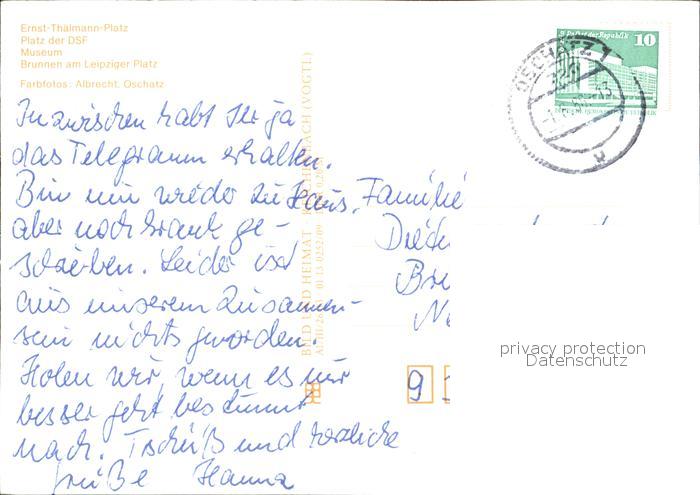 Ernst-Thälmann-Platz
Platz der DSF
Museum
Brunnen am Leipziger Platz
Farbfotos: Albrecht, Oschatz
Inzwischen habt Ihr ja
das Telegramm erhalten.
Bin nun wieder zu Haus,
aber noch krank ge-
schrieben. Leider ist
aus unserem Zusammen-
sein nichts geworden.
Holen wir, wenn es mir
besser geht bestimmt
nach. Tschüß und herzliche
Grüße Hanna
BILD UND HEIMAT REICHENBACH (VOGTL)
Familie
9
10
OSCHATZ 1
privacy protection
Datenschutz